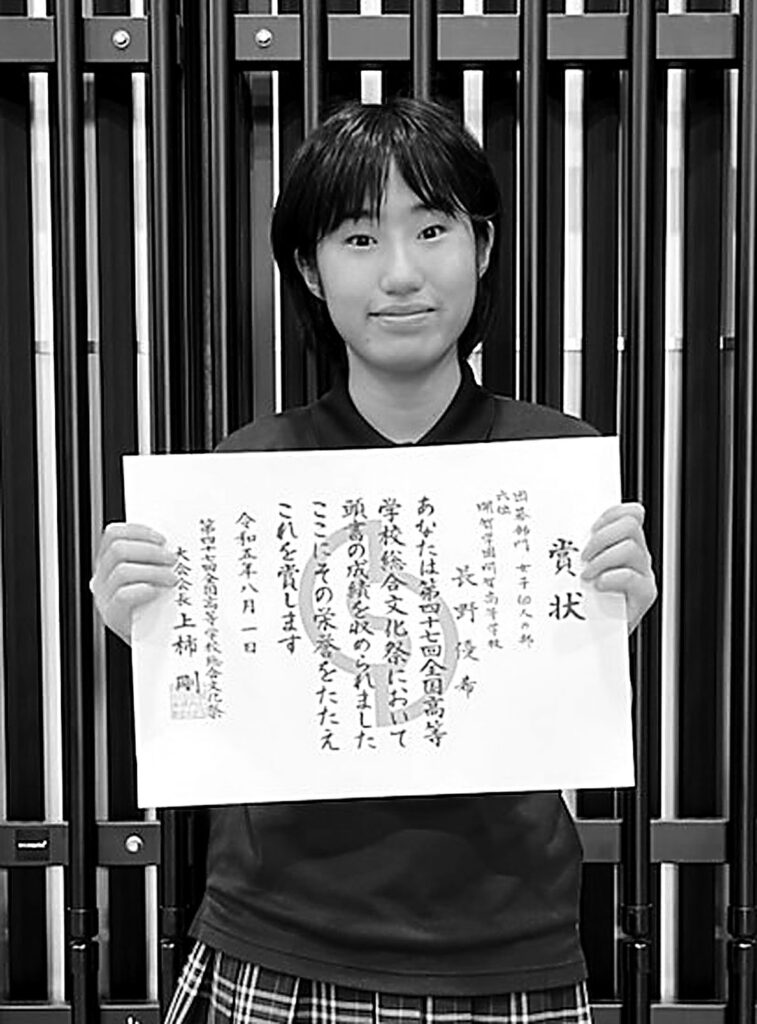 賞状
囲碁部門 女子個人の部
六位
開智学園開智高等学校
長野優希
あなたは第四十七回全国高等
学校総合文化祭において
頭書の成績を収められました
ここにその栄誉をたたえ
これを賞します
令和五年八月一日
第四十七回全国高等学校総合文化祭
大会会長 上柿 剛